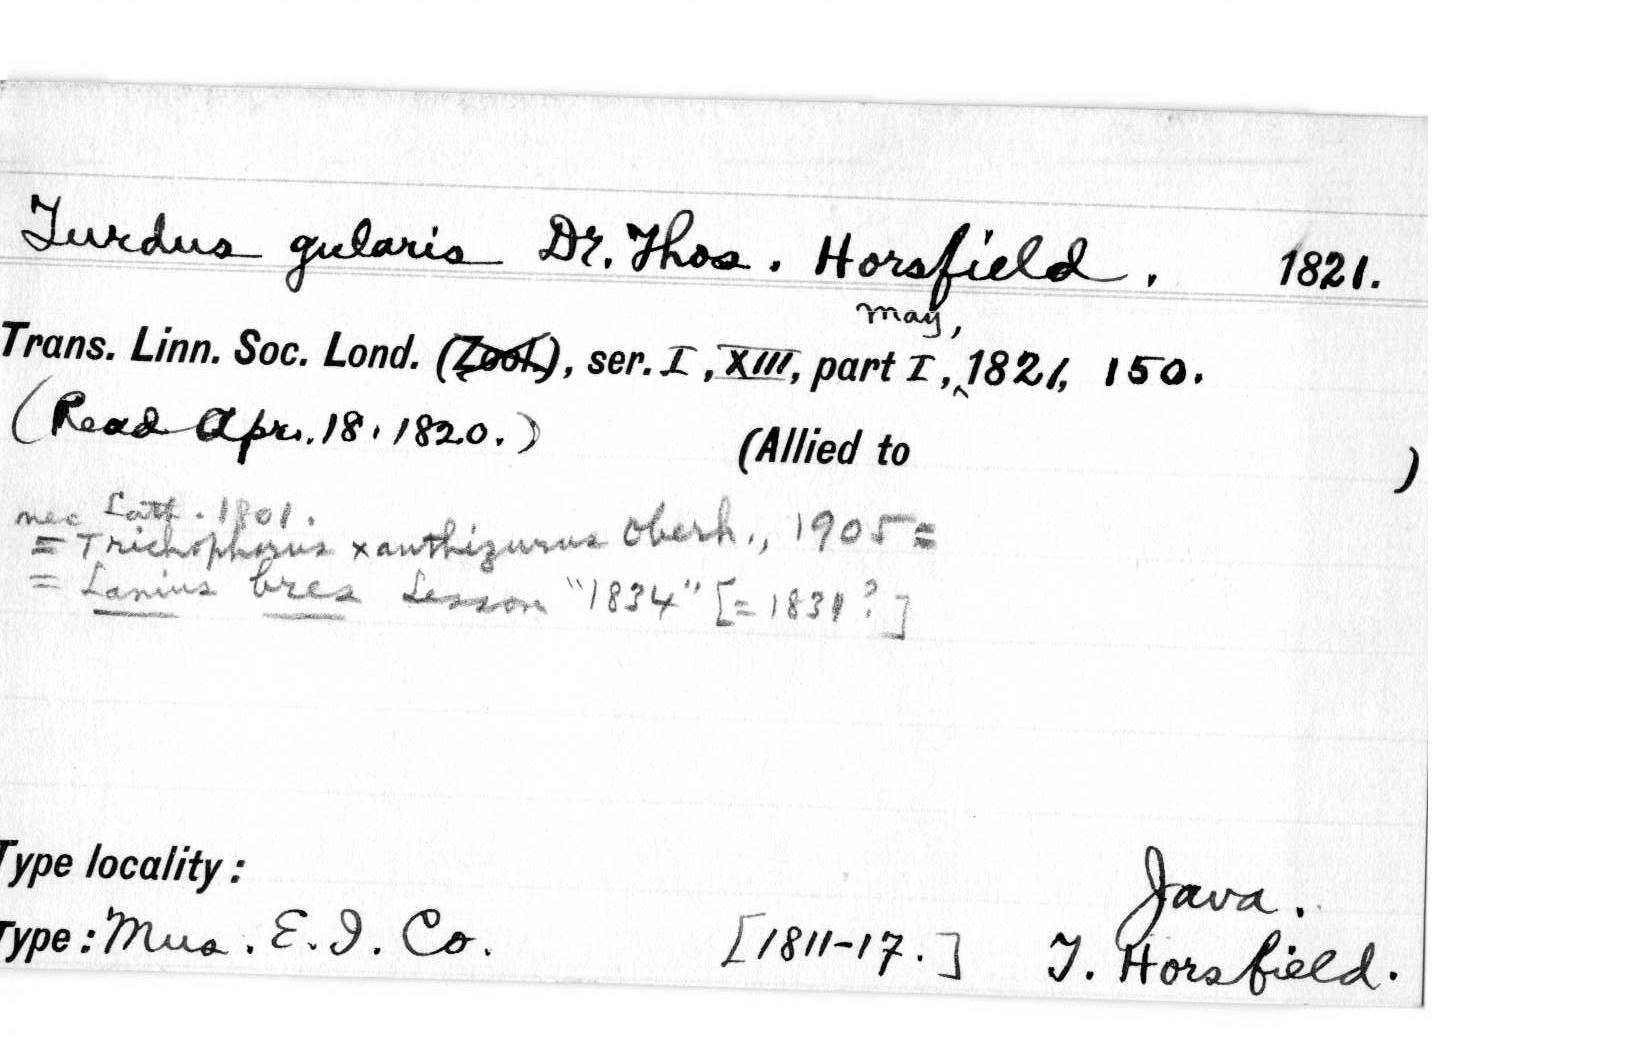 Turdus gularis Dr. Thos. Horsfield. 1821.
May,
Trans. Linn. Soc. Lond. (Zool.), ser. I, XIII, part I, ‸1821, 150.
(Read Apr. 18, 1820.) (Allied to )
nec Lath. 1801.
= Trichophorus xanthizurus Oberh., 1905 =
= Lanius bres Lesson "1834" [= 1831?]
Type locality: Java.
Type: Mus. E. I. Co. [1811-17.] T. Horsfield.